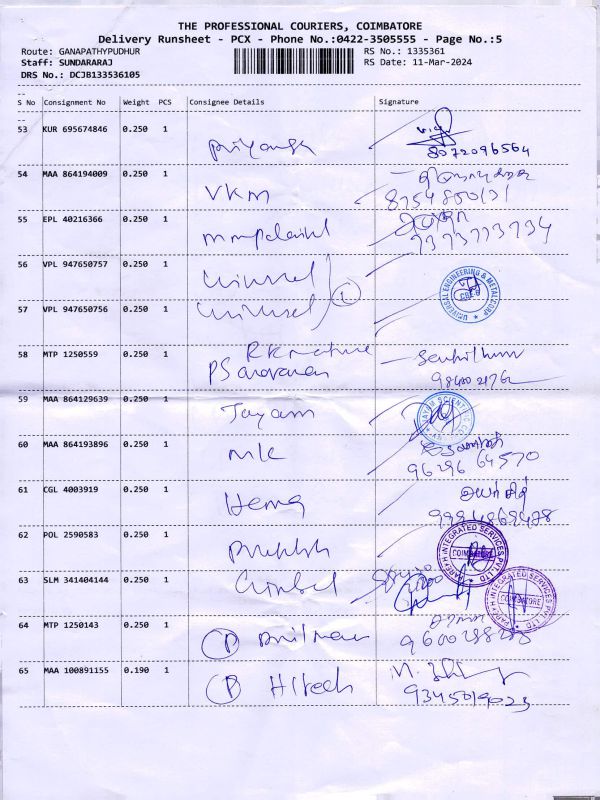 THE PROFESSIONAL COURIERS, COIMBATORE
Delivery Runsheet - PCX - Phone No.:0422-3505555 - Page No.:5
Route: GANAPATHYPUDHUR RS No.: 1335361
Staff: SUNDARARAJ RS Date: 11-Mar-2024
DRS No.: DCJB133536105
S No Consignment No Weight PCS Consignee Details Signature
53 KUR 695674846 0.250 1 Priyanga 8072096564
54 MAA 864194009 0.250 1 VKM
55 EPL 40216366 0.250 1
56 VPL 947650757 0.250 1 UNIVERSAL ENGINEERING & METALCORP CBE-6
57 VPL 947650756 0.250 1
58 MTP 1250559 0.250 1 PSaravanan
59 MAA 864129639 0.250 1 Jayam
60 MAA 864193896 0.250 1 MK 96296 64570
61 CGL 4003919 0.250 1 Hema 9994869478
62 POL 2590583 0.250 1 INTEGRATED SERVICES PVT LTD COIMBATORE
63 SLM 341404144 0.250 1 INTEGRATED SERVICES PVT LTD COIMBATORE
64 MTP 1250143 0.250 1 P
65 MAA 100891155 0.190 1 P Hitech 9345019023